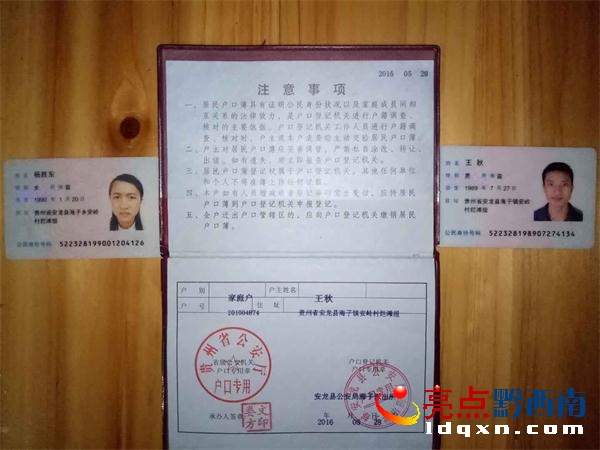 2016 05 28
注意事项
一、居民户口簿具有证明公民身份状况以及家庭成员间相
互关系的法律效力，是户口登记机关进行户籍调查、
核对的主要依据。户口登记机关工作人员进行户籍调
查、核对时，户主或本户成员应主动交验居民户口簿。
二、户主对居民户口簿
出借。如有遗失，
三、居民户口簿登记权属于户口登记机关，其他任何单位
和个人不得在簿上
四、本户如有人员增减或者登记事项发生变动，应持居民
户口簿到户口登记机关申报登记。
五、全户迁出户口管辖区的，应向户口登记机关缴销居民
户口簿。
姓名 杨胜东
性别 女
1990 年 1 月 20 日
住址 贵州省安龙县海子乡安岭
村烂滩组
公民身份号码 522328199001204126
姓名 王秋
性别 男
1989 年 7 月 27 日
住址 贵州省安龙县海子镇安岭
村烂滩组
公民身份号码 522328198907274134
户别 家庭户 户主姓名 王秋
户号 201004874 住址 贵州省安龙县海子镇安岭村烂滩组
贵州省公安厅
户口专用
省级公安机关
户口专用章
户口登记机关
户口专用章
安龙县公安局海子派出所
承办人签章
2016 年 05 月 28 日
亮点黔西南
ldqxn.com